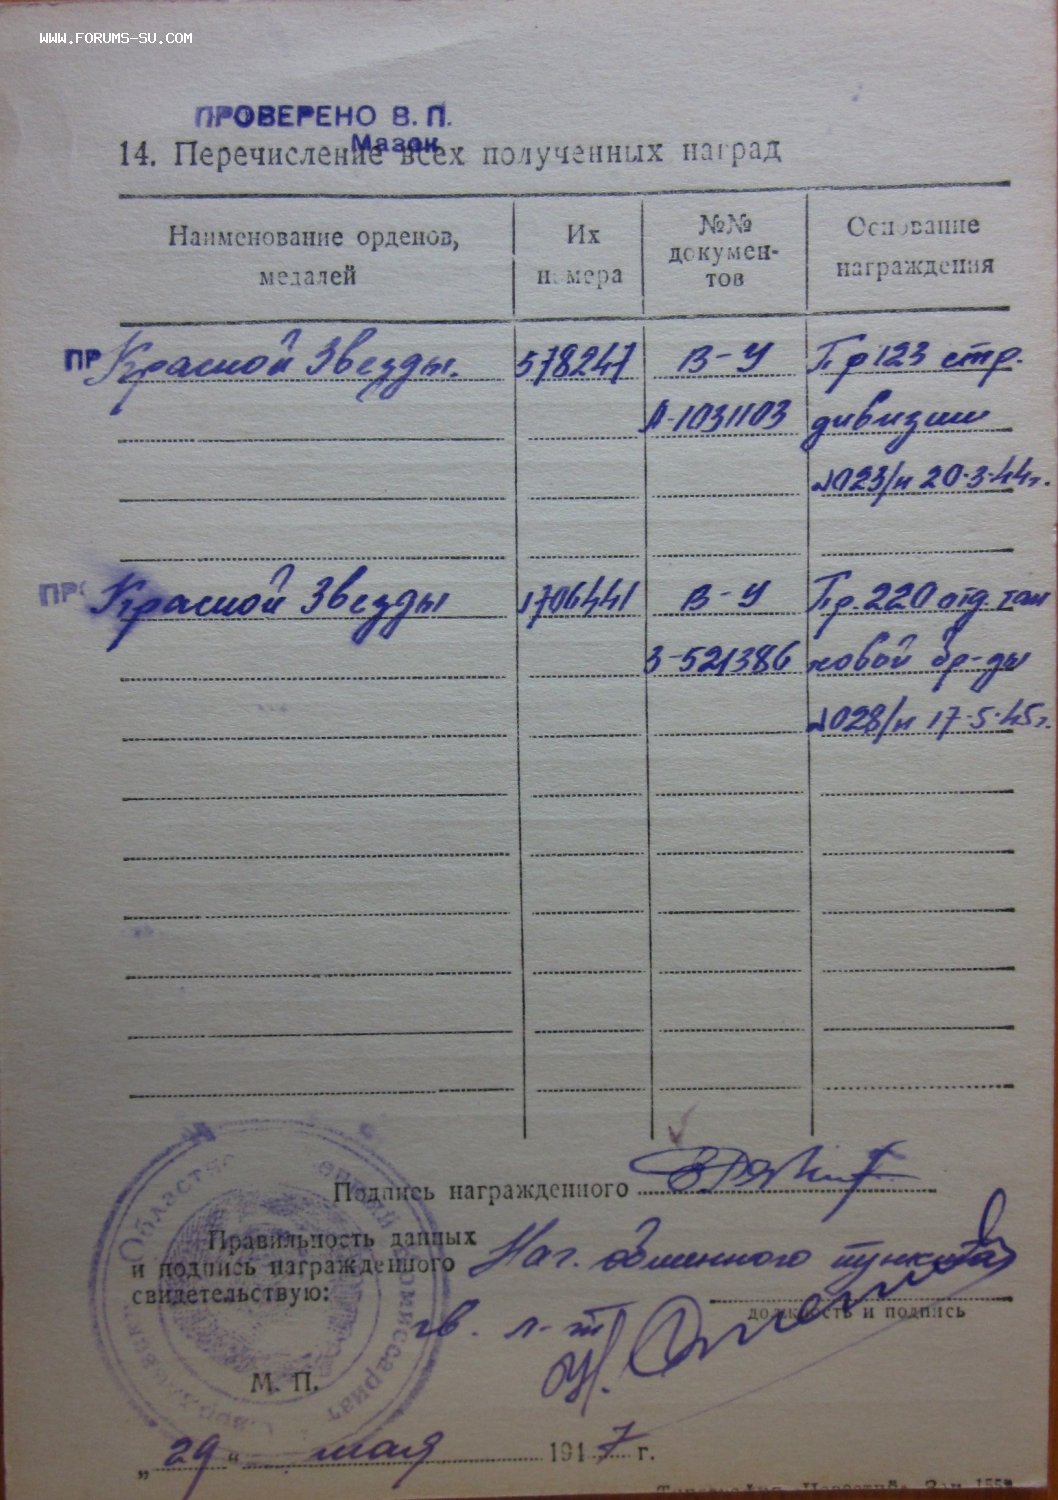 WWW.FORUMS-SU.COM
ПРОВЕРЕНО В. П.
Мазок
14. Перечисление всех полученных наград
Наименование орденов, медалей
Их номера
№№ документов
Основание награждения
ПР Красной Звезды. 578247 В-У Пр 123 стр.
А-1031103 дивизии
№023/н 20.3.44г.
ПР Красной Звезды 1706441 В-У Пр. 220 отд. тан
З-521386 ковой бр-ды
№028/н 17.5.45г.
Подпись награжденного
Правильность данных
и подпись награжденного
свидетельствую:
Нач. обменного пункта
должность и подпись
гв. л-т
М. П.
Областной военный комиссариат
„29" мая 1947 г.